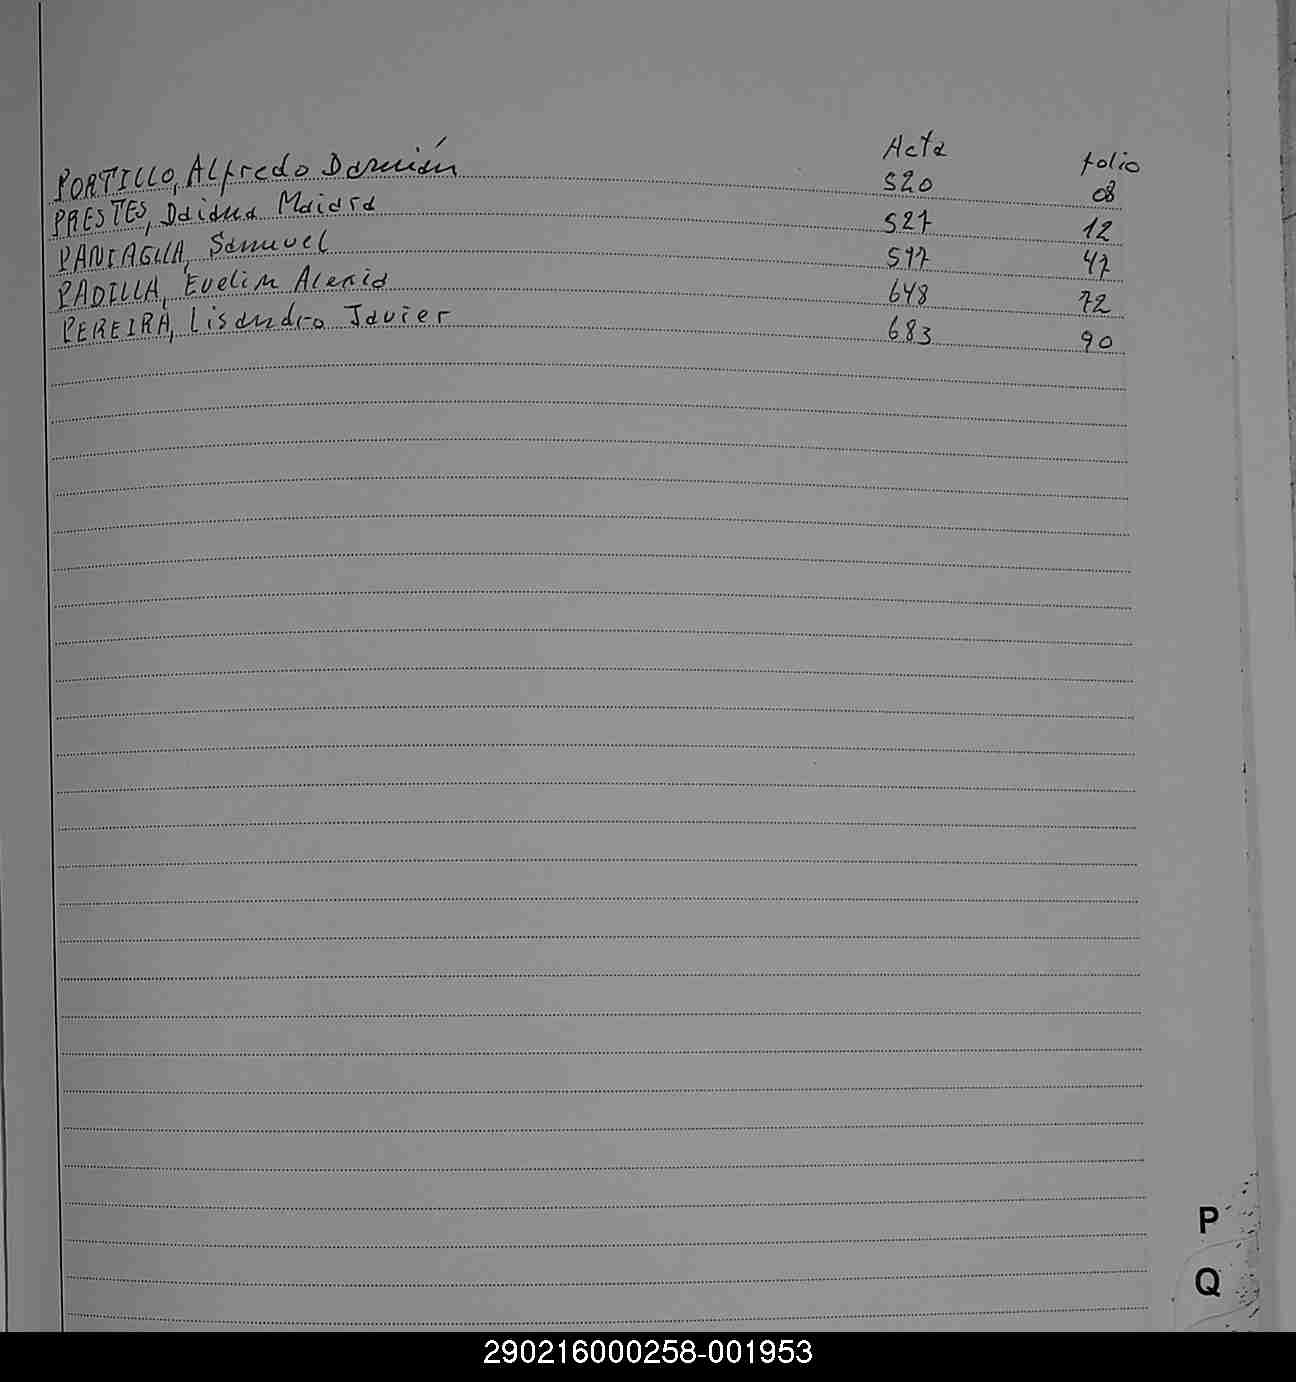 Acta folio
PORTILLO, Alfredo Damián 520 08
PRESTES, Daiana Maiara 527 12
PANIAGUA, Samuel 597 47
PADILLA, Evelin Alexia 648 72
PEREIRA, Lisandro Javier 683 90
P
Q
290216000258-001953